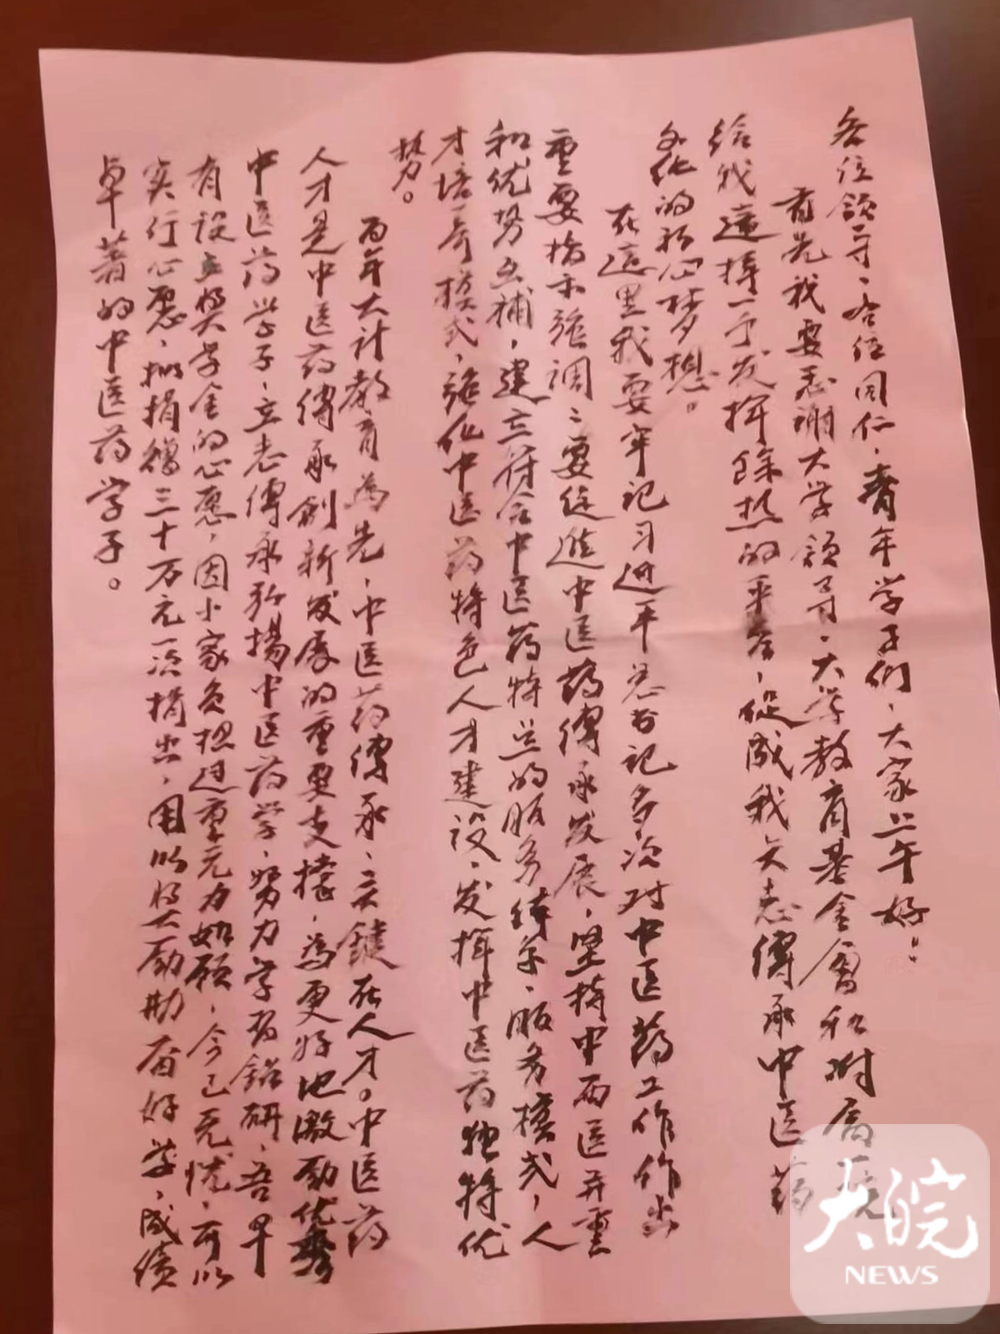 各位领导、各位同仁、青年学子们、大家上午好。
首先我要感谢大学领导、大学教育基金会和附属一院
给我这样一个发挥余热的平台，促成我矢志傳承中医药
文化的初心梦想。
在这里我要牢记习近平总书记多次对中医药工作作出
重要指示强调：要促进中医药傳承发展，坚持中西医并重
和优势互補，建立符合中医药特点的服务体系、服务模式，人
才培养模式，强化中医药特色人才建设、发挥中医药独特优
势。
百年大计教育為先，中医药傳承、关键在人才。中医药
人才是中医药傳承創新发展的重要支撑，為更好地激励优秀
中医药学子、立志傳承弘揚中医药学、努力学习鉆研、吾早
有设立奖学金的心愿，因小家负担过重无力如願，今已无忧，可以
实行心愿，拟捐贈三十万元一次捐出，用以奖励勤奋好学，成绩
卓著的中医药学子。
大皖
NEWS